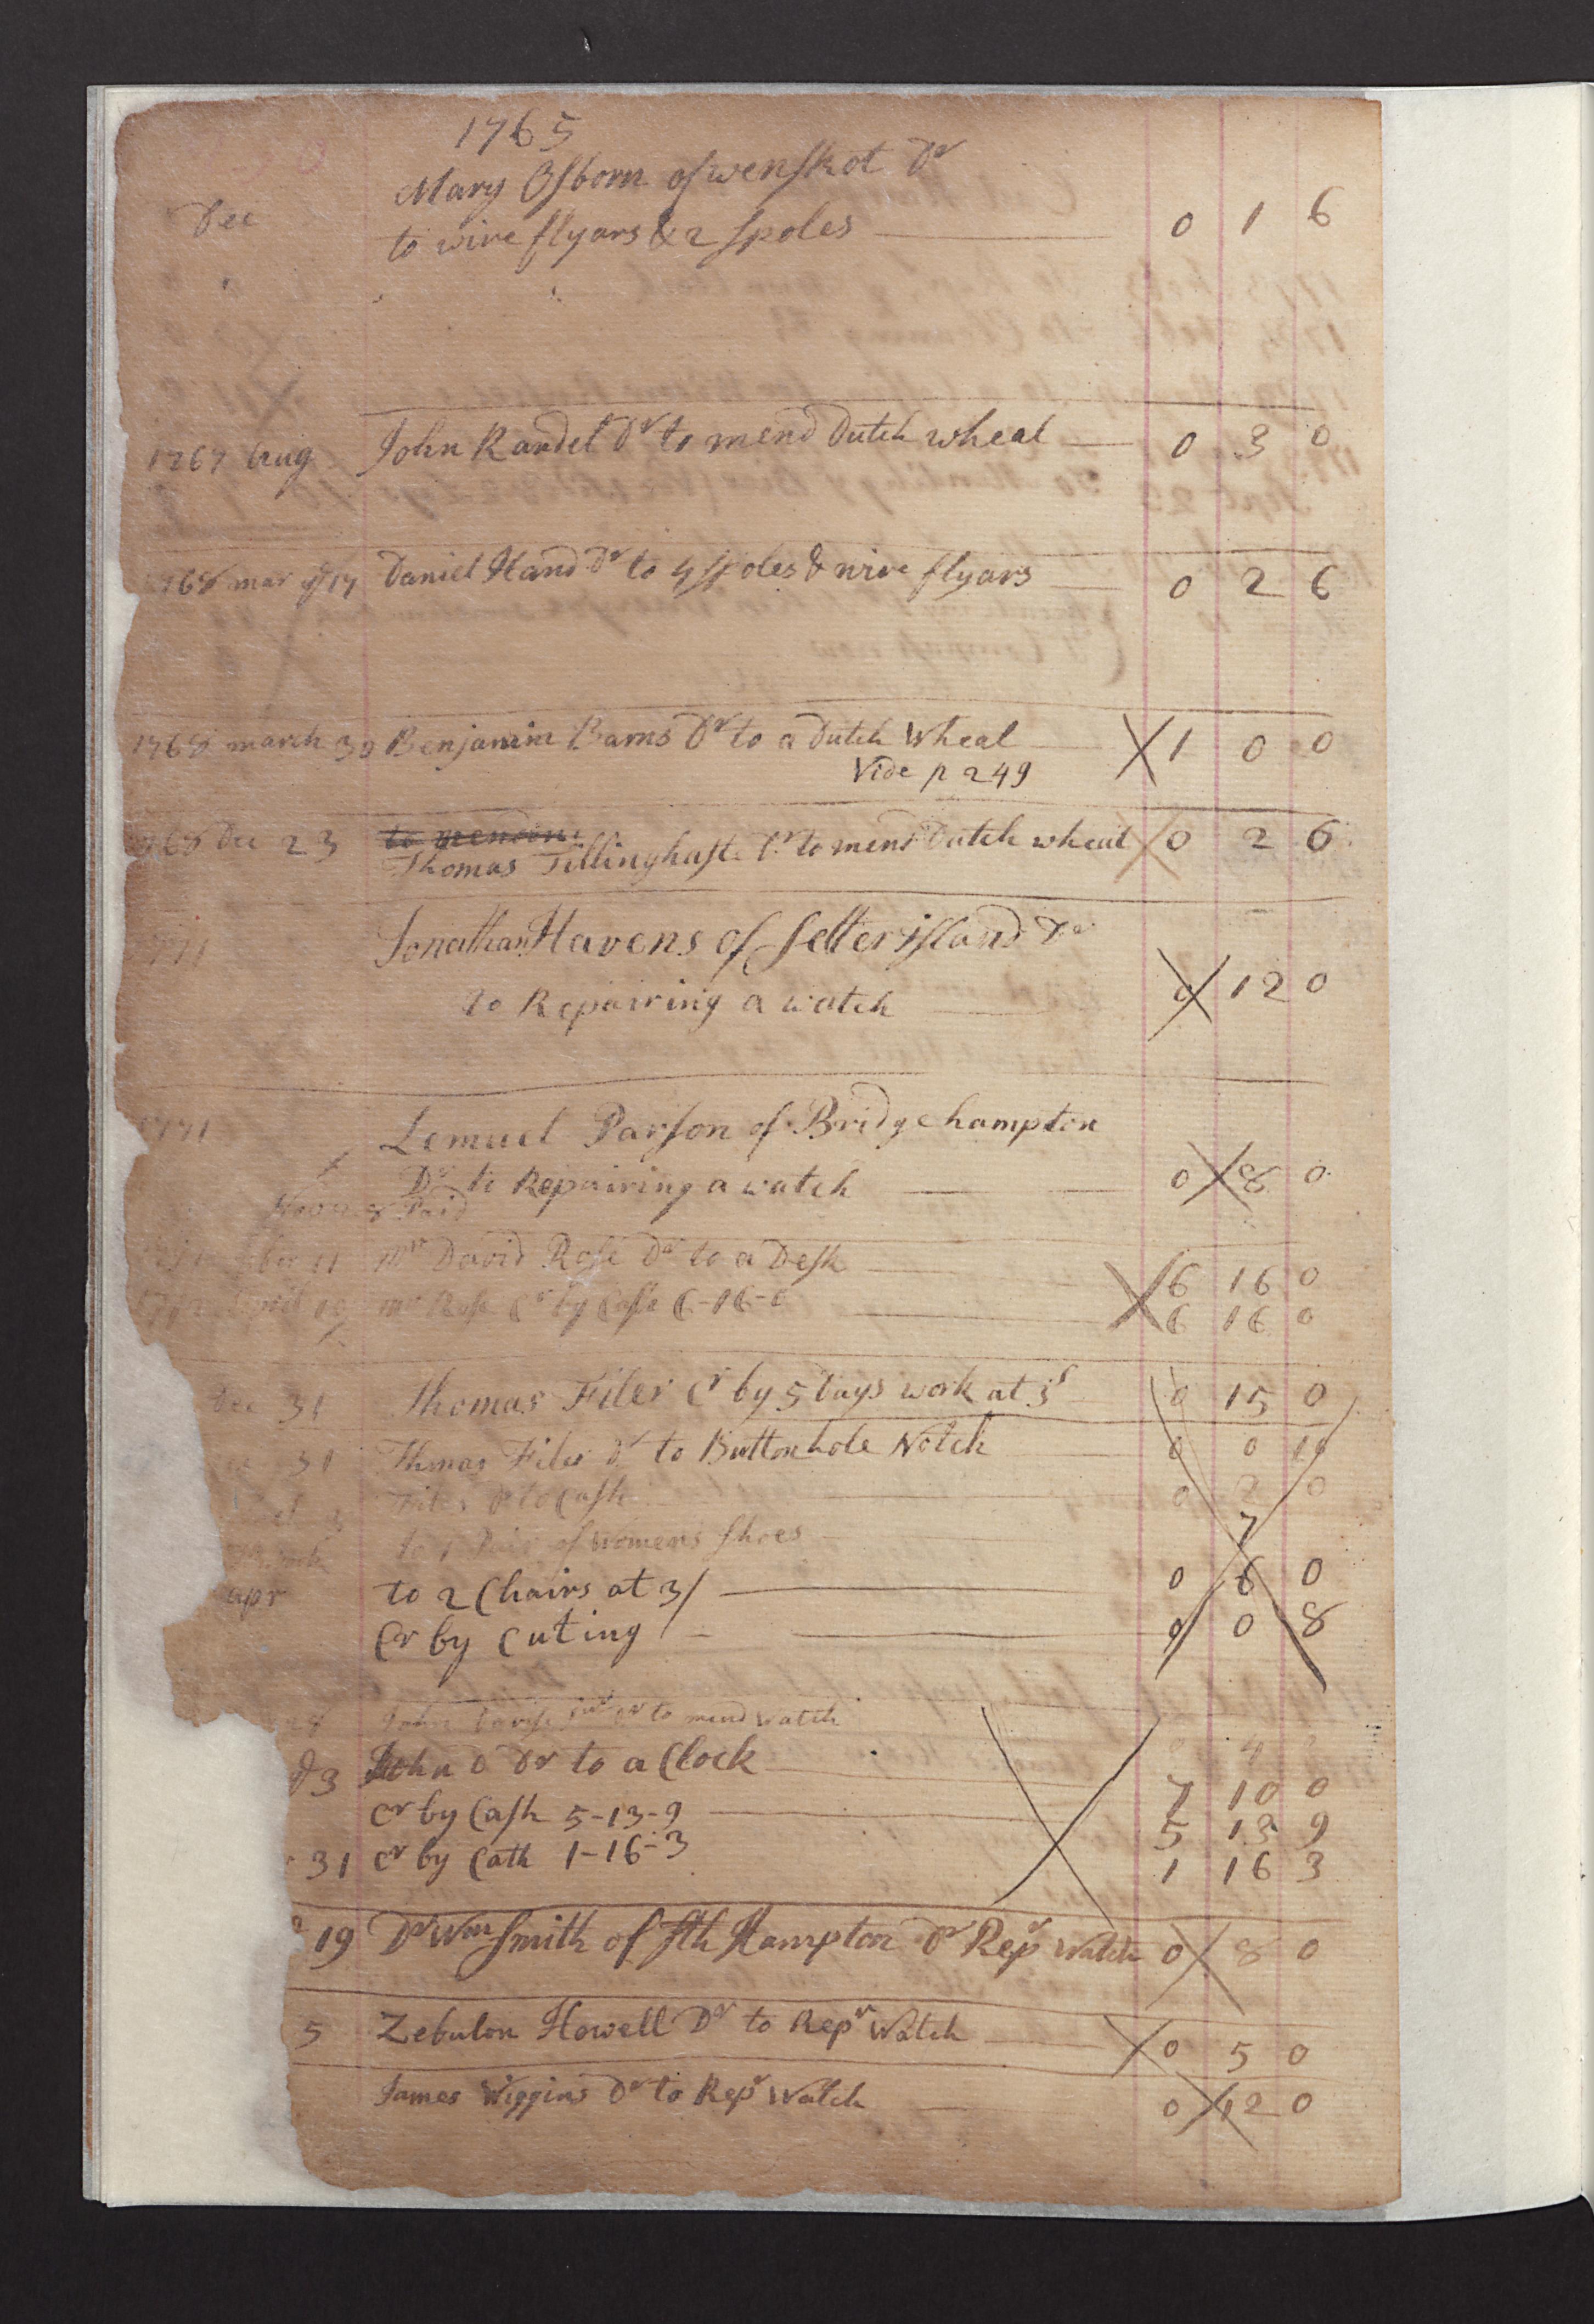 1765
Mary Osborn of wenskot Dr
Dec to wire flyars & 2 spoles 0 1 6
1767 Aug John Randel Dr to mend Dutch wheal 0 3 0
1768 mar 17 Daniel Hand Dr to 4 spoles & wire flyars 0 2 6
1768 march 30 Benjamin Barns Dr to a Dutch Wheal 1 0 0
Vide p 249
to mendin
1768 Dec 23 Thomas Tillinghast Dr to mend Dutch wheal 0 2 6
1771 Jonathan Havens of Selterisland Dr
to Repairing a watch 0 12 0
1771 Lemuel Parson of Bridgehampton
Dr to Repairing a watch 0 8 0
Paid
11 Mr David Rose Dr to a Desk 6 16 0
1772 April Mr Rose Cr by Cash 6-16-0 6 16 0
Dec 31 Thomas Filer Cr by 5 Days work at 3s 0 15 0
31 Thomas Filer Dr to Buttonhole Notch 0 0 10
Filer Dr to Cash 0 2 0
to 1 Pair of Womens Shoes 7
apr to 2 Chairs at 3/ 0 6 0
Cr by Cuting 0 0 8
John Davise to mend watch 4
3 John D Dr to a Clock 7 10 0
Cr by Cash 5-13-9 5 13 9
31 Cr by Cath 1-16-3 1 16 3
19 Dr Wm Smith of Sth Hampton Dr Repr Watch 0 8 0
5 Zebulon Howell Dr to Repr Watch 0 5 0
James Wiggins Dr to Repr Watch 0 12 0